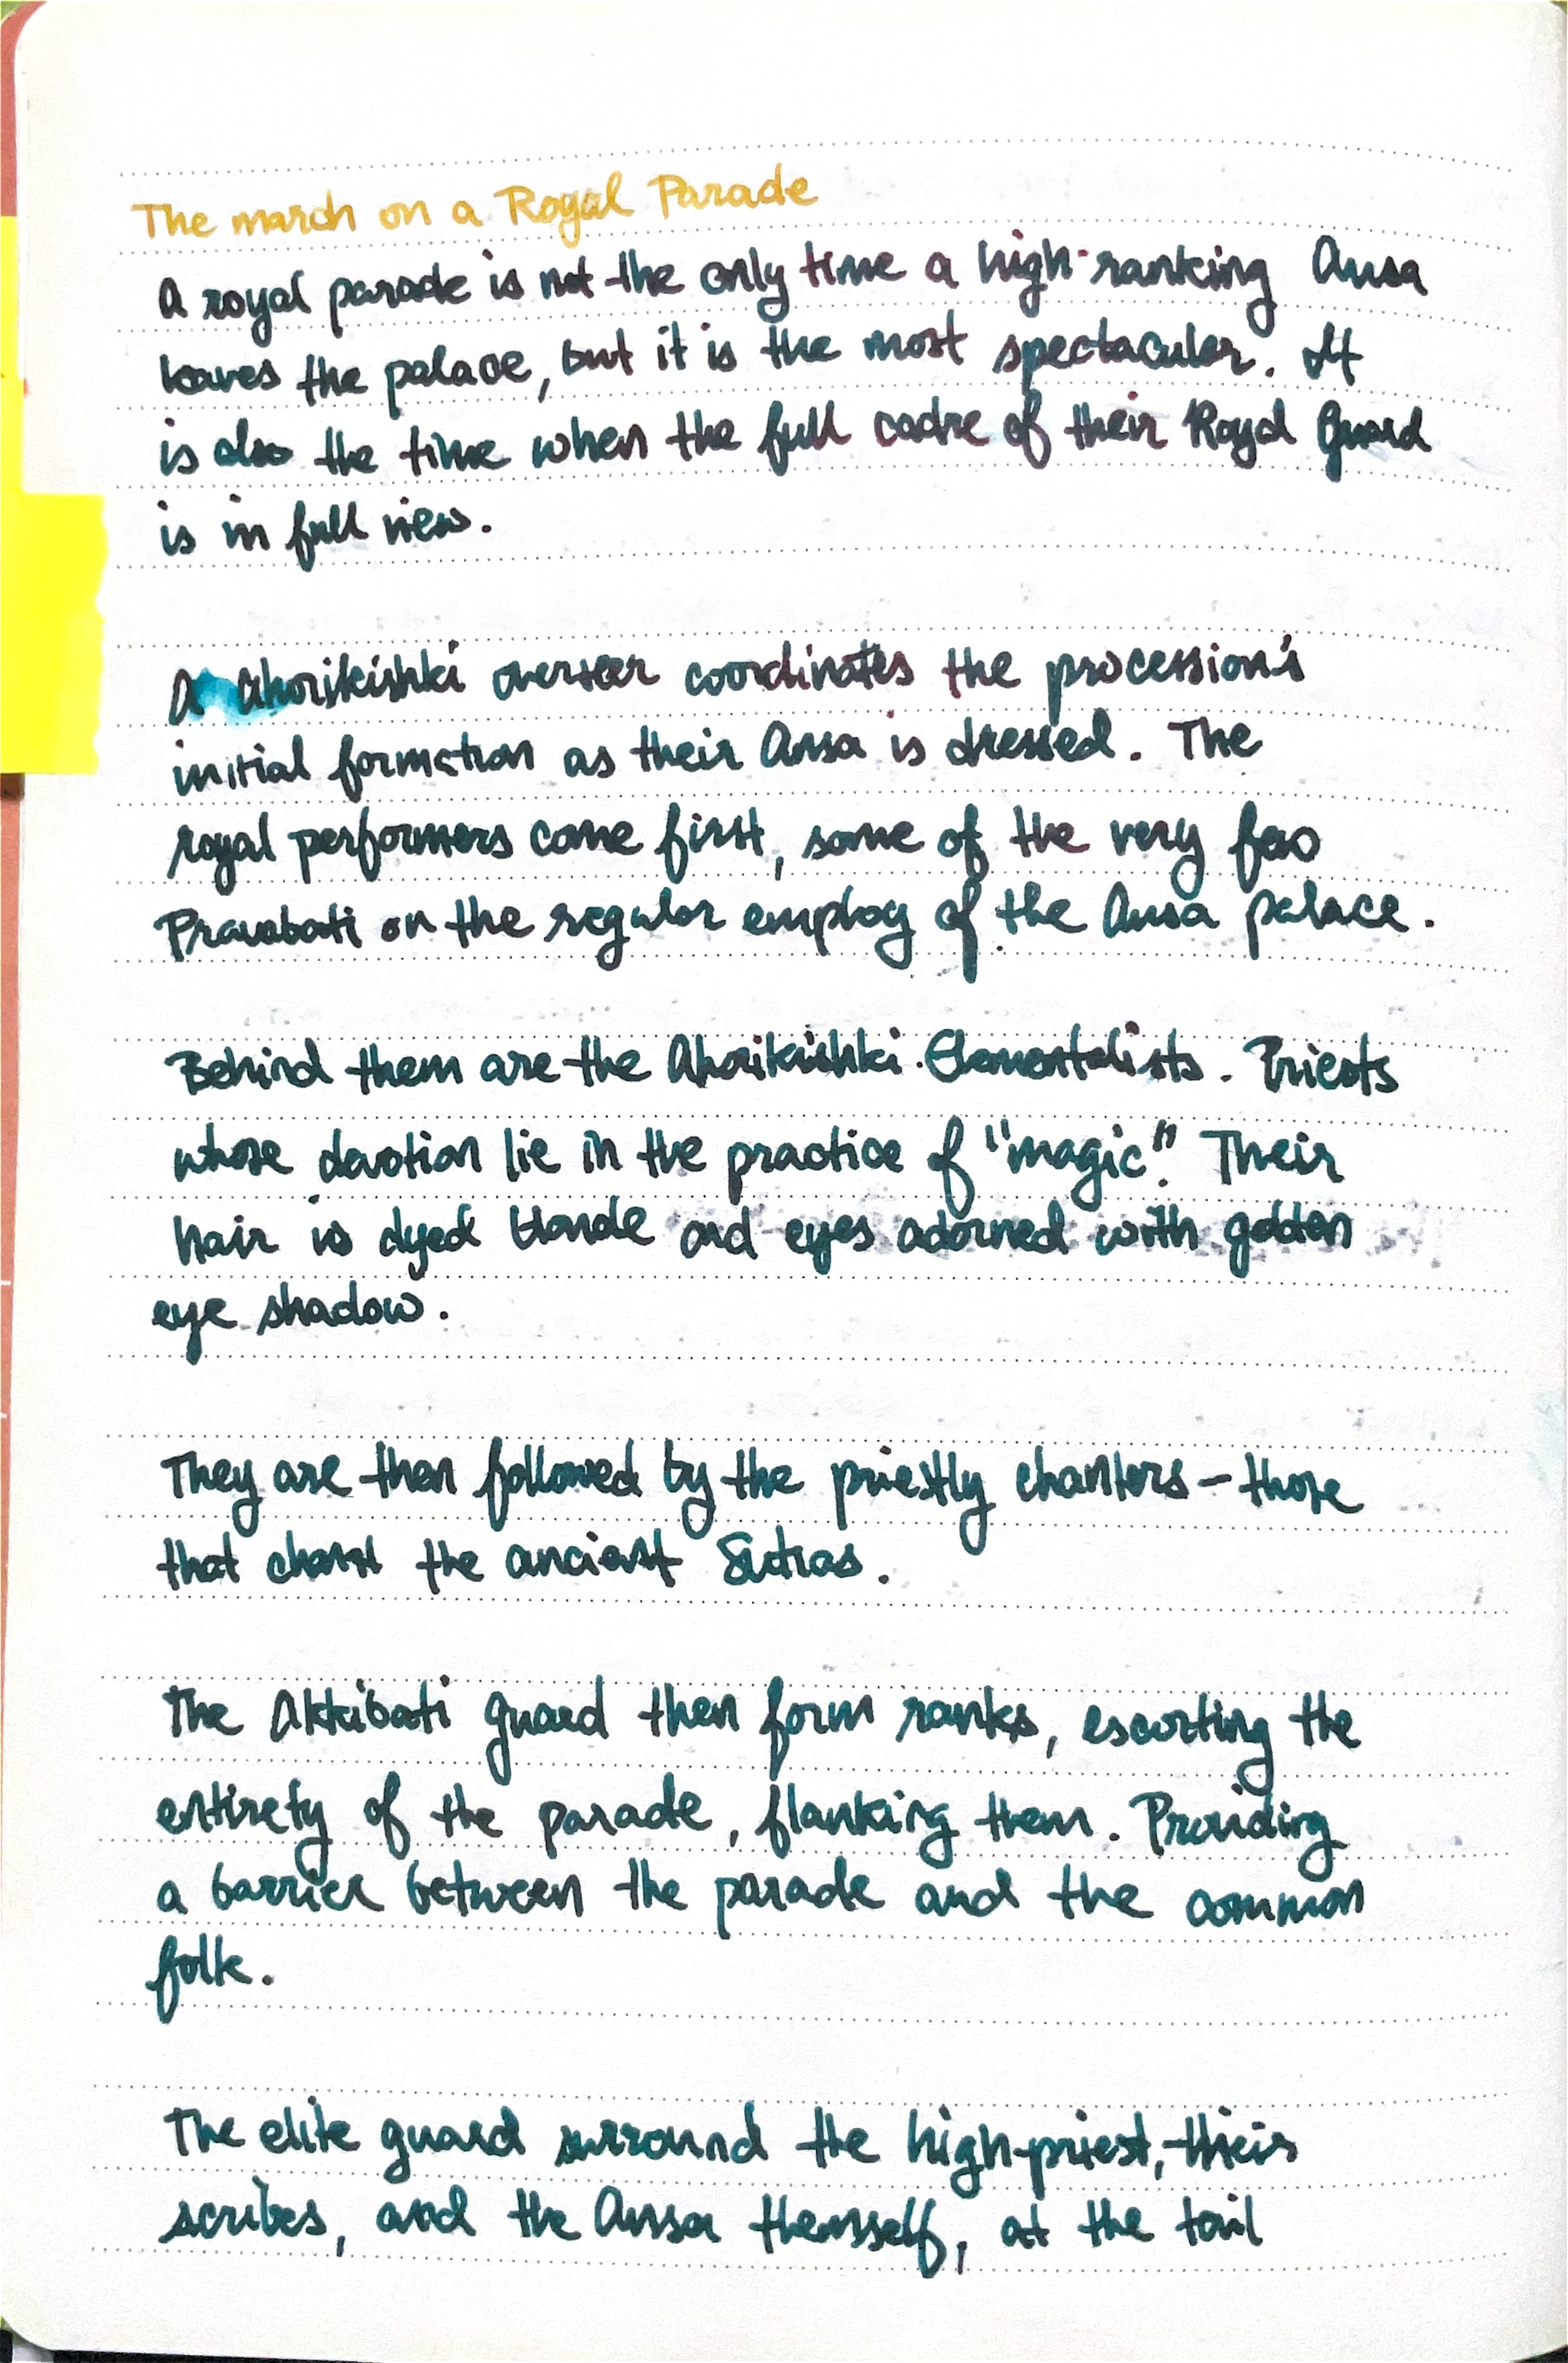 The march on a Royal Parade
A royal parade is not the only time a high-ranking Ansa
leaves the palace, but it is the most spectacular. It
is also the time when the full cadre of their Royal Guard
is in full view.
A Ahorikishki overseer coordinates the procession's
initial formation as their Ansa is dressed. The
royal performers come first, some of the very few
Pravabati on the regular employ of the Ansa palace.
Behind them are the Ahorikishki Elementalists. Priests
whose devotion lie in the practice of "magic". Their
hair is dyed blonde and eyes adorned with golden
eye shadow.
They are then followed by the priestly chanters - those
that chant the ancient Sutras.
The Akkibati guard then form ranks, escorting the
entirety of the parade, flanking them. Providing
a barrier between the parade and the common
folk.
The elite guard surround the high-priest, their
scribes, and the Ansa themself, at the tail